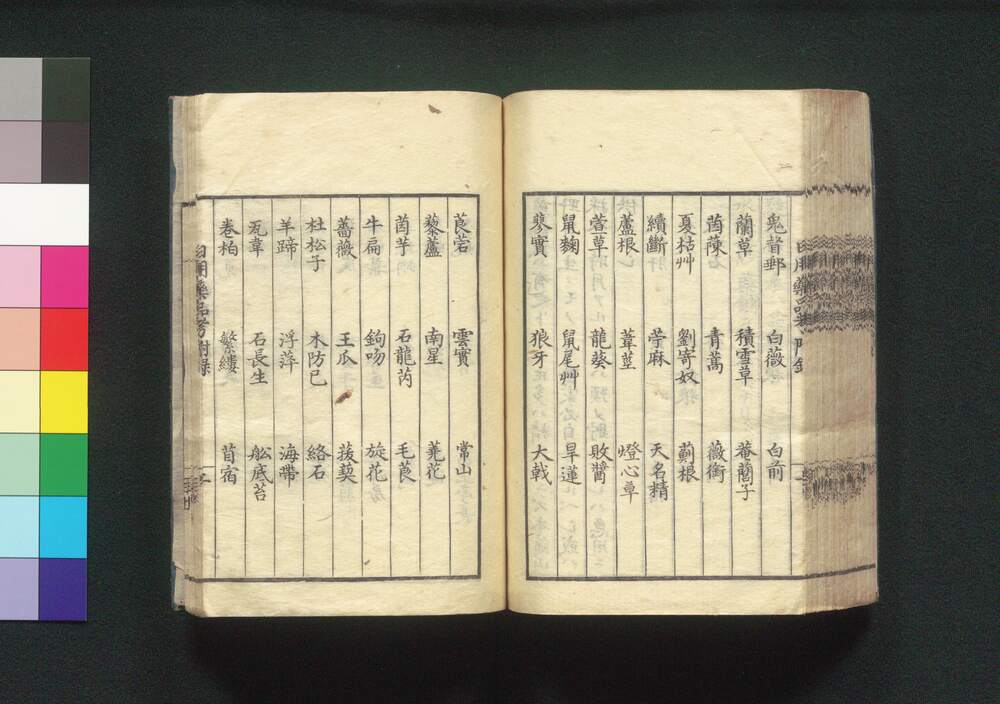 鬼督郵 白薇 白前
蘭草 積雪草 菴䕡子
茵蔯 青蒿 薇銜
夏枯艸 劉寄奴 薊根
續斷 苧麻 天名精
蘆根 葦莖 燈心草
萱草 龍葵 敗醬
鼠麴 鼠尾艸 旱蓮
蓼實 狼牙 大戟
莨菪 雲實 常山
藜蘆 南星 蕘花
茵芋 石龍芮 毛莨
牛扁 鉤吻 旋花
薔薇 王瓜 菝葜
杜松子 木防已 絡石
羊蹄 浮萍 海帶
瓦韋 石長生 船底苔
卷柏 繁縷 苜宿
日用藥品考附録